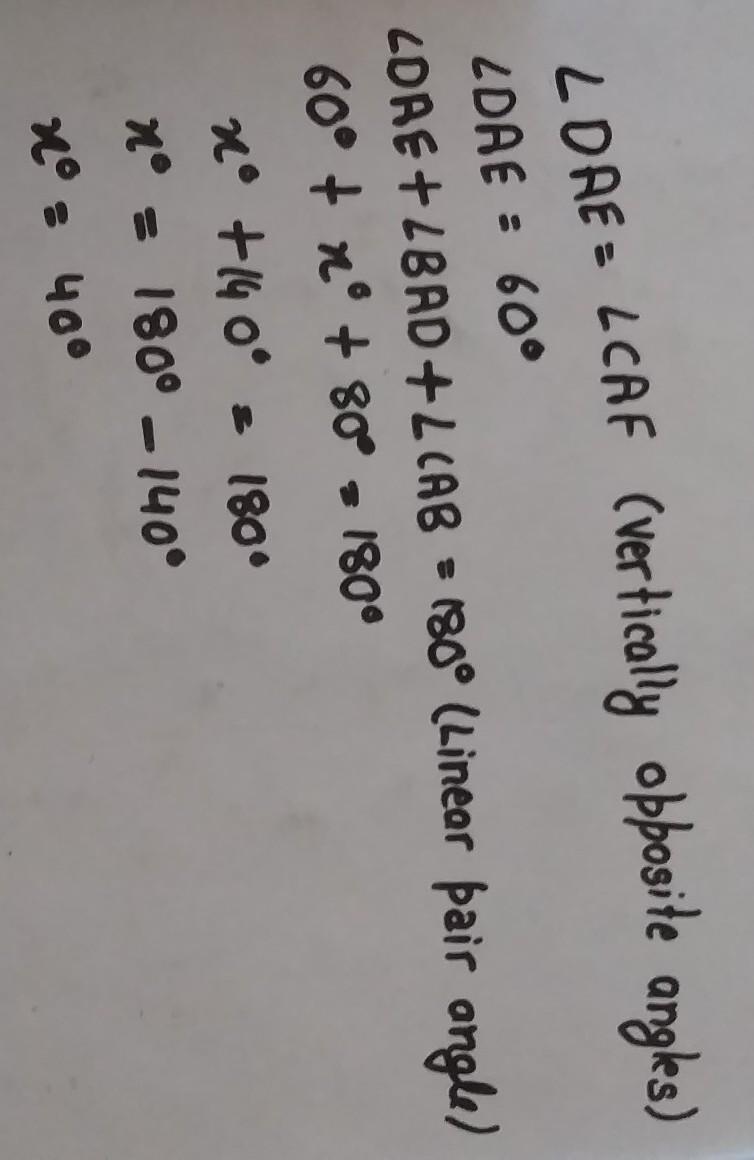 ∠DAE = ∠CAF (vertically opposite angles)
∠DAE = 60°
∠DAE + ∠BAD + ∠CAB = 180° (Linear pair angle)
60° + x° + 80° = 180°
x° + 140° = 180°
x° = 180° - 140°
x° = 40°